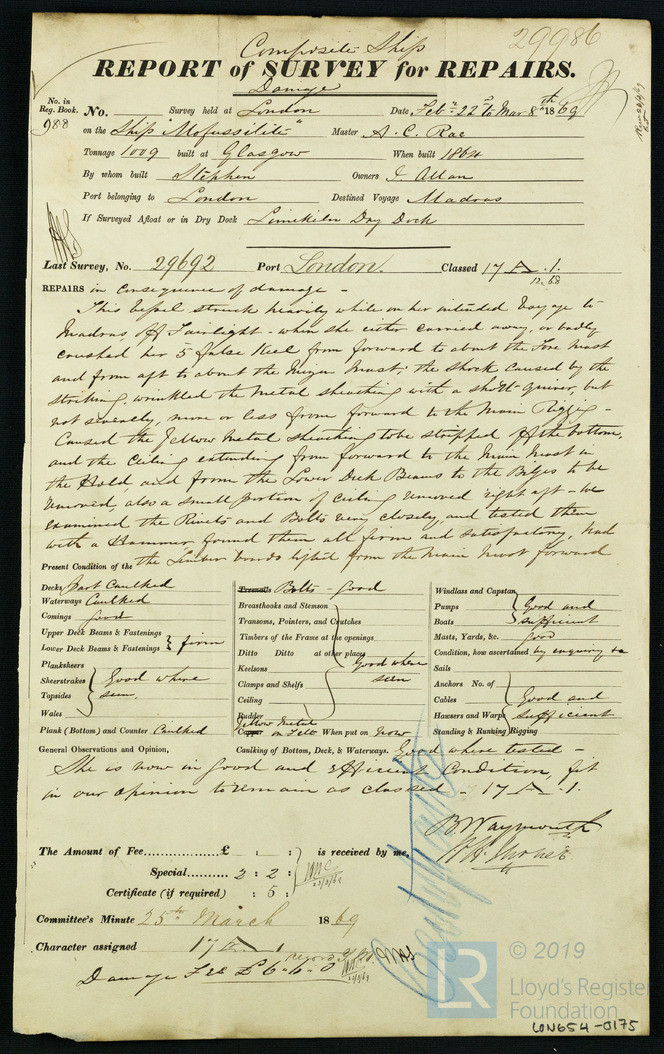 Composite Ship
29986
REPORT of SURVEY for REPAIRS.
Damage
No. in Reg. Book. No. Survey held at London Date, Feby 22d to Mar 8th 1869
988 on the Ship "Mofussilite" Master A. C. Rae
Tonnage 1009 built at Glasgow When built 1864
By whom built Stephen Owners J Allan
Port belonging to London Destined Voyage Madras
If Surveyed Afloat or in Dry Dock Limekiln Dry Dock
Last Survey, No. 29692 Port London. Classed 17 A .1.
12.68
REPAIRS in consequence of damage -
This vessel struck heavily while on her intended Voyage to
Madras, off Fairlight - when she either carried away, or badly
crushed her 5 false Keel from forward to about the Fore Mast
and from aft to about the Mizen Mast; the shock caused by the
striking, wrinkled the Metal sheathing with a short quiver, but
not severely, more or less from forward to the Main Rigging -
Caused the Yellow Metal sheathing to be stripped off the bottom,
and the Ceiling extending from forward to the Main Mast in
the Hold, and from the Lower Deck Beams to the Bilges to be
removed, also a small portion of Ceiling removed right aft - we
examined the Rivets and Bolts very closely, and tested them
with a Hammer found them all firm and satisfactory, had
the Limber boards lifted from the Main Mast forward
Present Condition of the
Decks Part Caulked
Waterways Caulked
Comings Good
Upper Deck Beams & Fastenings
Lower Deck Beams & Fastenings } firm
Planksheers
Sheerstrakes
Topsides
Wales
} Good where seen.
Plank (Bottom) and Counter Caulked
Treenails Bolts - Good
Breasthooks and Stemson
Transoms, Pointers, and Crutches
Timbers of the Frame at the openings
Ditto Ditto at other places
Keelsons
Clamps and Shelfs
Ceiling
Rudder
} Good where seen
Yellow Metal
Copper on Felt When put on Now
Windlass and Capstan
Pumps
Boats
} Good and sufficient
Masts, Yards, &c. Good
Condition, how ascertained by enquiry &c
Sails
Anchors No. of
Cables
Hawsers and Warps
} Good and sufficient
Standing & Running Rigging
General Observations and Opinion, Caulking of Bottom, Deck, & Waterways. Good where tested -
She is now in Good and efficient Condition, fit
in our opinion to remain as classed - 17 A .1.
B. Waymouth
The Amount of Fee................£ : : is received by me,
Special........... 2 : 2 :
Certificate (if required) : 5 :
Committee's Minute 25th March 1869
Character assigned 17 A 1
Damage Fee £6 " 6 " 0
© 2019
LR
Lloyd's Register
Foundation
LON654-0175